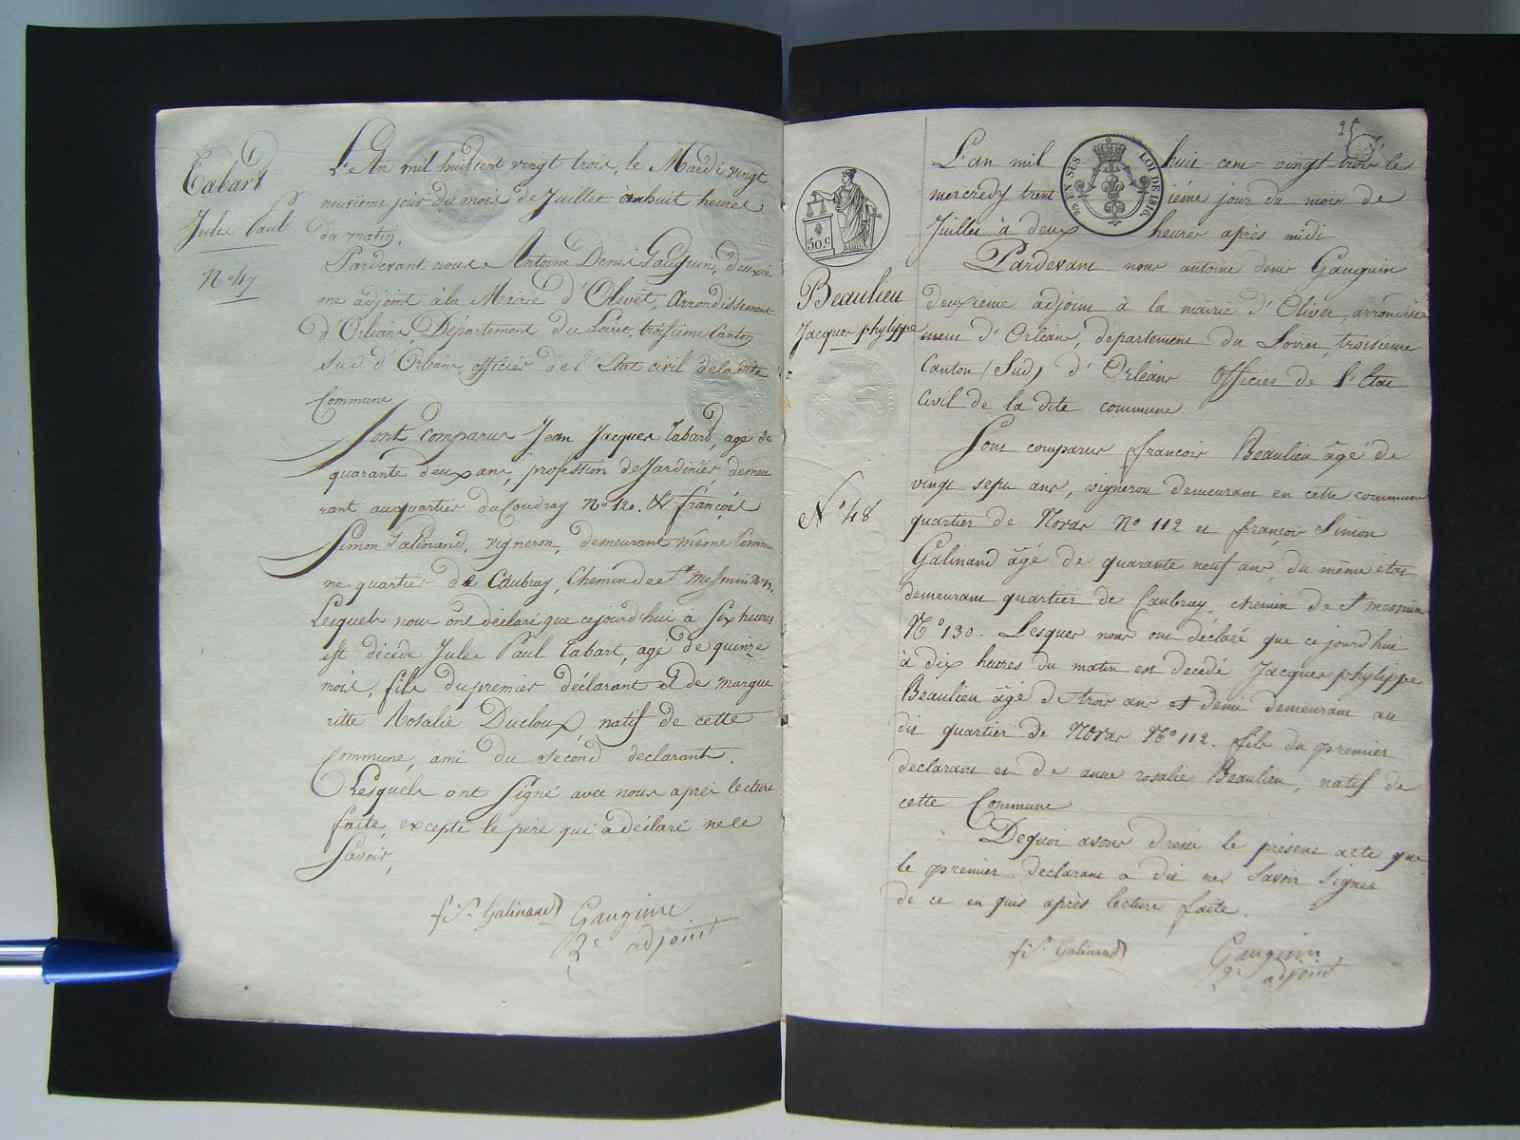 Tabart
Jules Paul
N° 47
L'An mil huit cent vingt trois, le Mardi vingt
neuvième jour du mois de Juillet à huit heures
du matin,
Pardevant nous Antoine Denis Gauguin, deuxiè
me adjoint à la Mairie d'Olivet, Arrondissement
d'Orléans, Département du Loiret, troisième Canton
Sud d'Orléans, officier de l'Etat civil de la dite
Commune
Sont comparus Jean Jacques Tabard, agé de
quarante deux ans, profession de Jardinier, demeu
rant au quartier du Coudray N° 120. & françois
Simon Galinand, vigneron, demeurant même Commu
ne quartier de Caubray, Chemin de St Mesmin
Lesquels nous ont déclaré que cejourd'hui à Six heures
est décédé Jules Paul Tabart, agé de quinze
mois, fils du premier déclarant & de Margue
ritte Rosalie Ducloux, natif de cette
Commune, ami du second declarant.
Lesquels ont Signé avec nous après lecture
faite, excepté le père qui a déclaré ne le
Savoir,
fs. Galinand Gauguin
2e adjoint
25
50 c
Beaulieu
Jacques phylippe
N° 48
LOI DE 1816
L'an mil huit cent vingt trois le
mercredy trentième jour du mois de
Juillet à deux heures après midi
Pardevant nous antoine denis Gauguin
deuxieme adjoint à la mairie d'Olivet, arrondisse
ment d'Orléans, departement du Loiret, troisieme
Canton (Sud) d'Orléans Officier de l'Etat
Civil de la dite commune
Sont comparus françois Beaulieu âgé de
vingt sept ans, vigneron demeurant en cette commune
quartier de Noras N° 112 et françois Simon
Galinand âgé de quarante neuf ans, du même état
demeurant quartier de Caubray, chemin de St mesmin
N° 130. Lesquels nous ont déclaré que ce jourd'hui
à dix heures du matin est decedé Jacques phylippe
Beaulieu âgé de trois ans et demi demeurant au
dit quartier de Noras N° 112. fils du premier
declarant et de anne rosalie Beaulieu, natif de
cette Commune
Dequoi avons dressé le présent acte que
le premier declarant a dit ne Savoir Signer
de ce en quis après lecture faite.
fs. Galinand Gauguin
2e adjoint